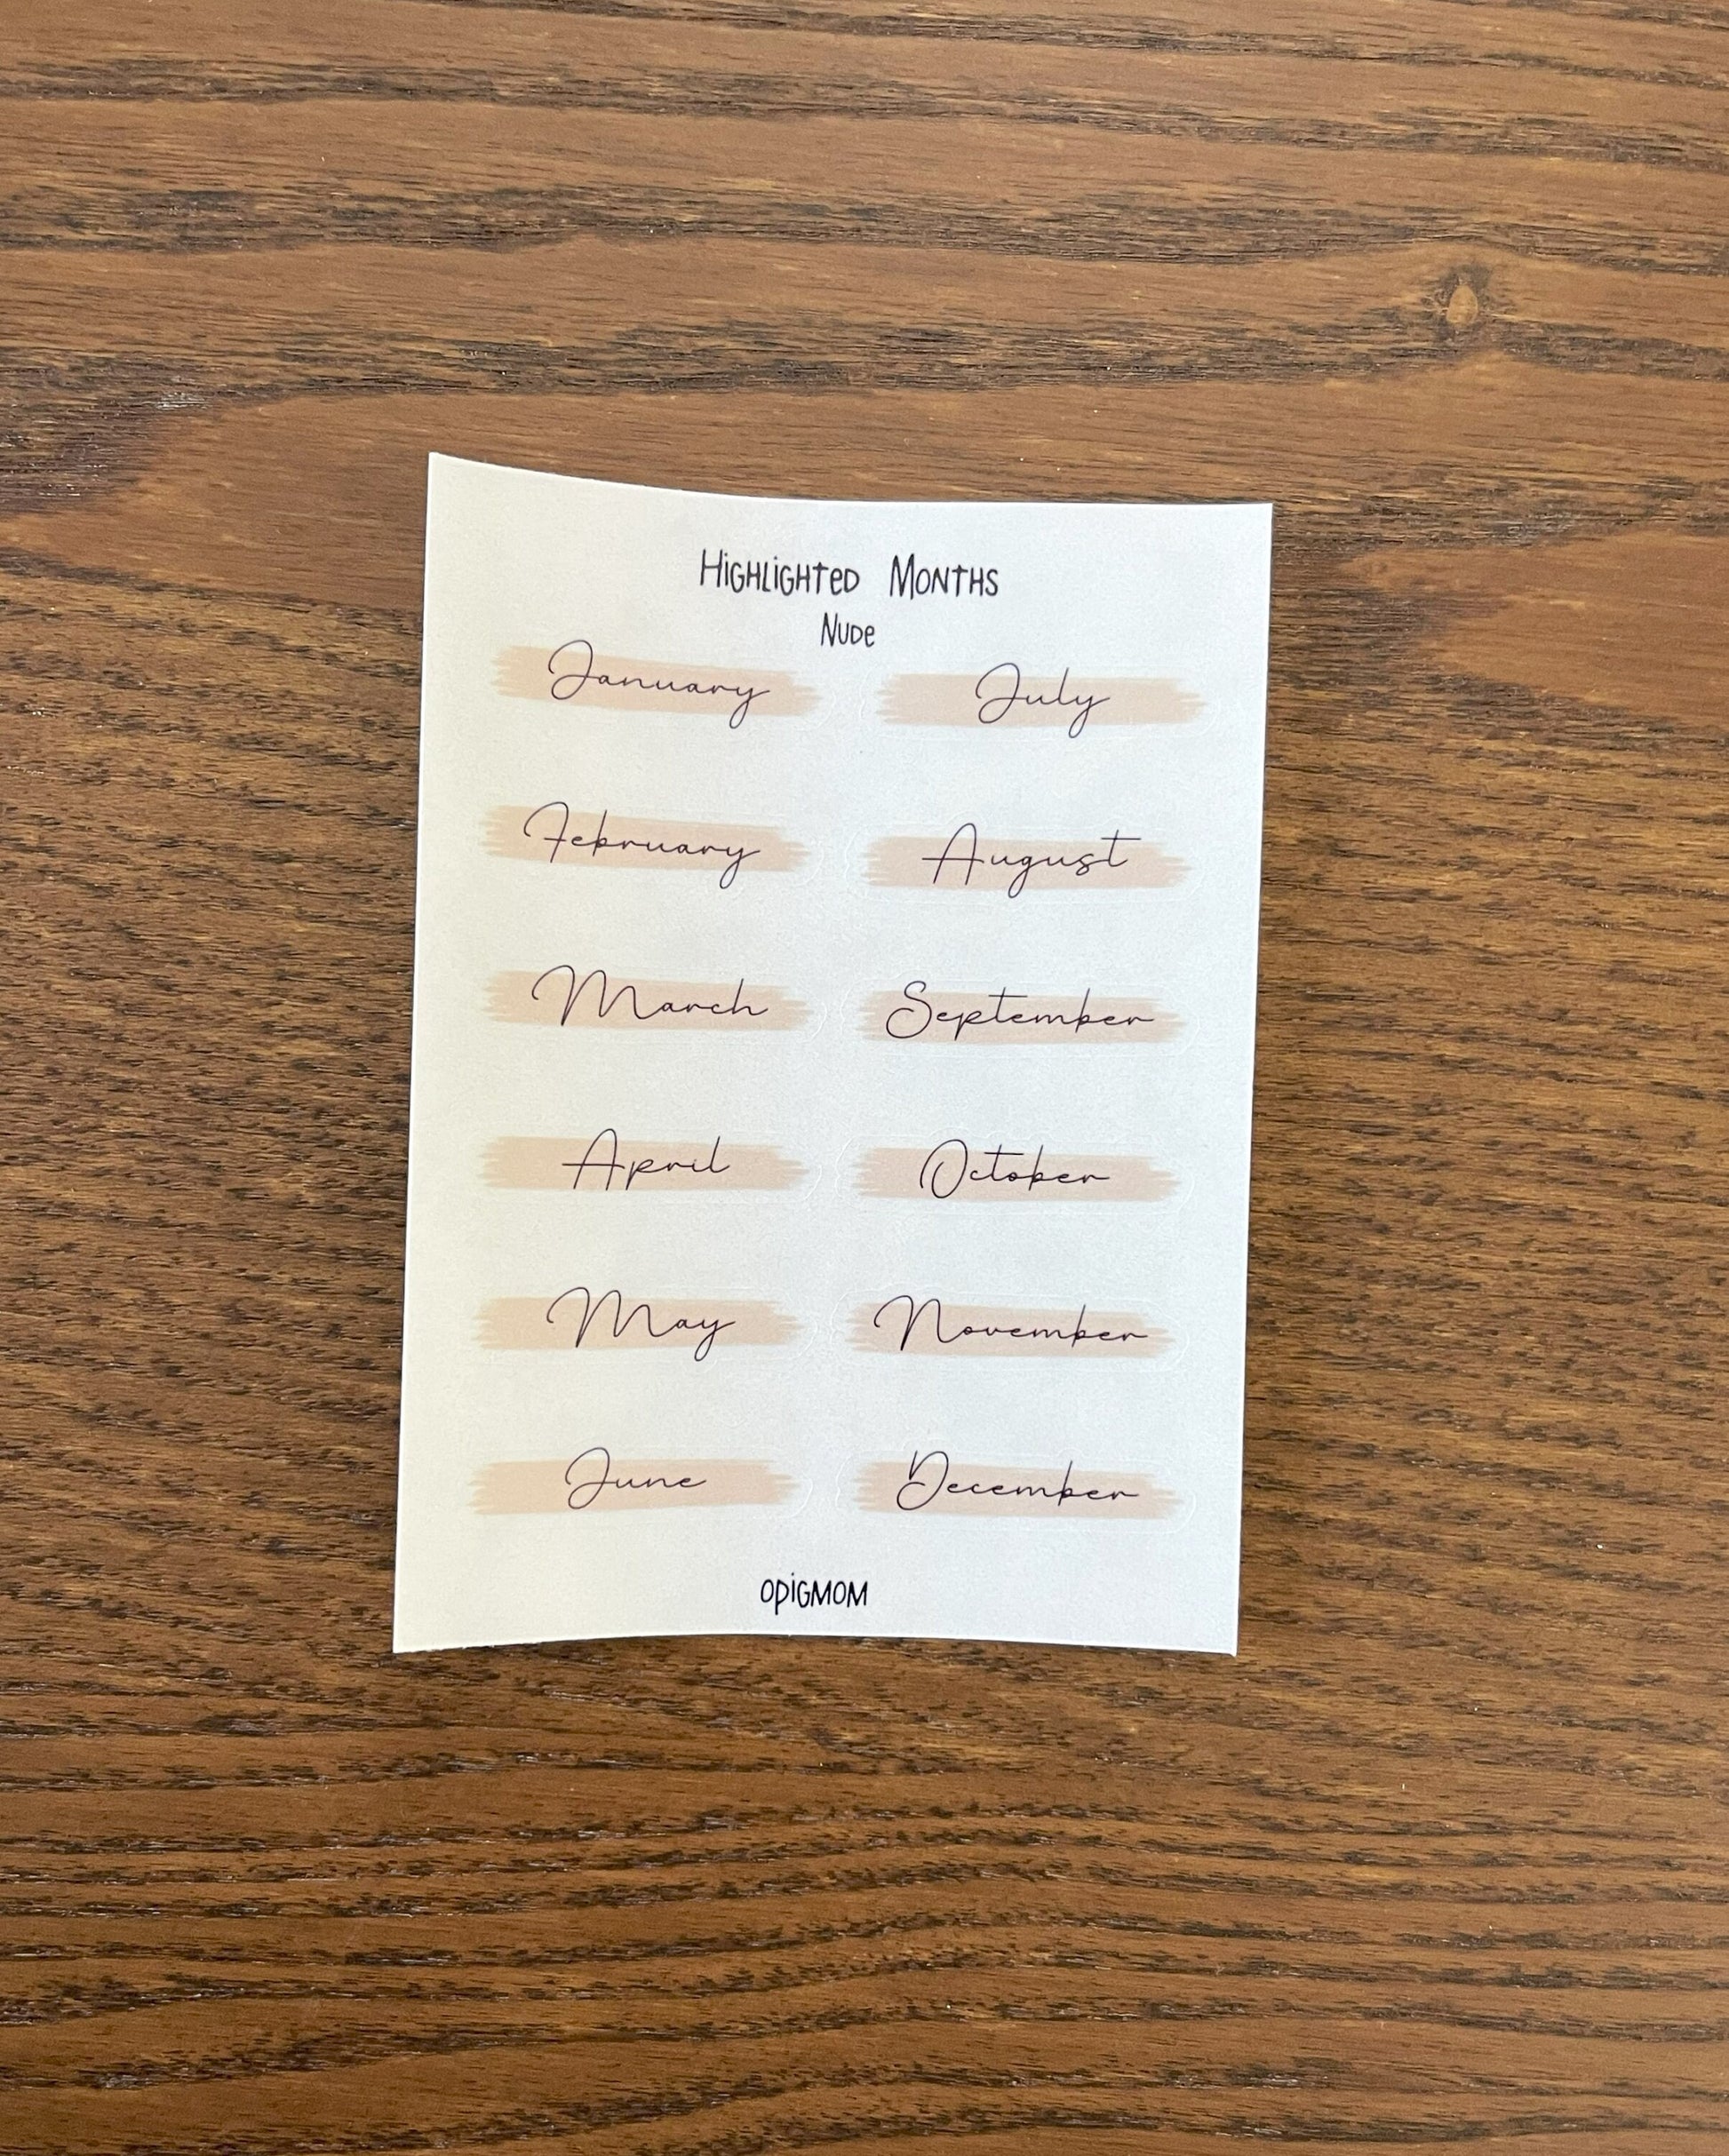 HiGHLiGHTeD MONTHS
NuDe
January
February
March
April
May
June
July
August
September
October
November
December
OpiGMOM